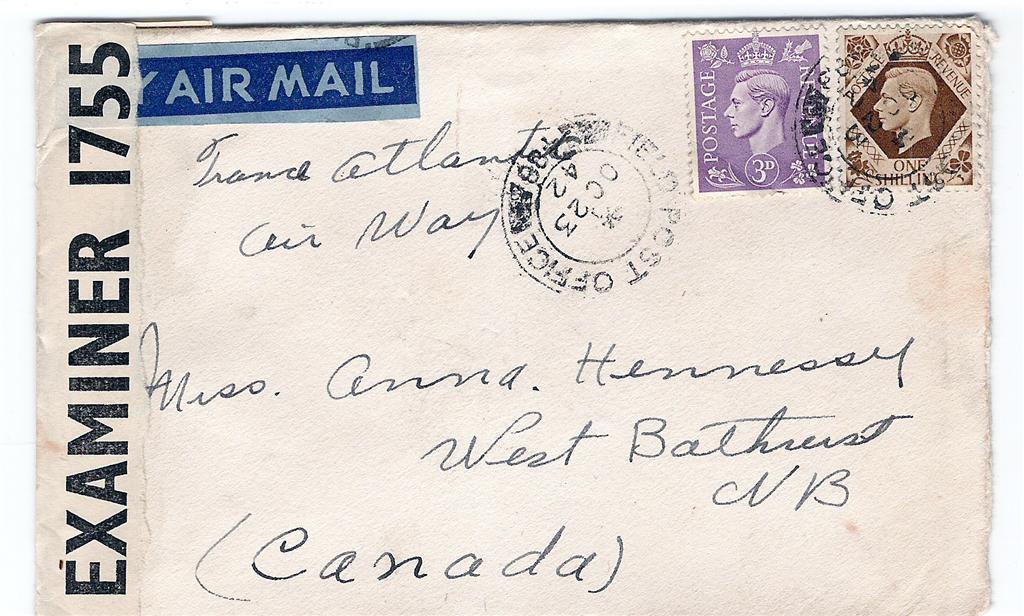 EXAMINER 1755
Y AIR MAIL
Trans Atlant
Air Way
POSTAGE REVENUE
3D
POSTAGE REVENUE
ONE
SHILLING
FIELD POST OFFICE
23
OC
42
Miss. Anna. Hennessy
West Bathurst
NB
(Canada)